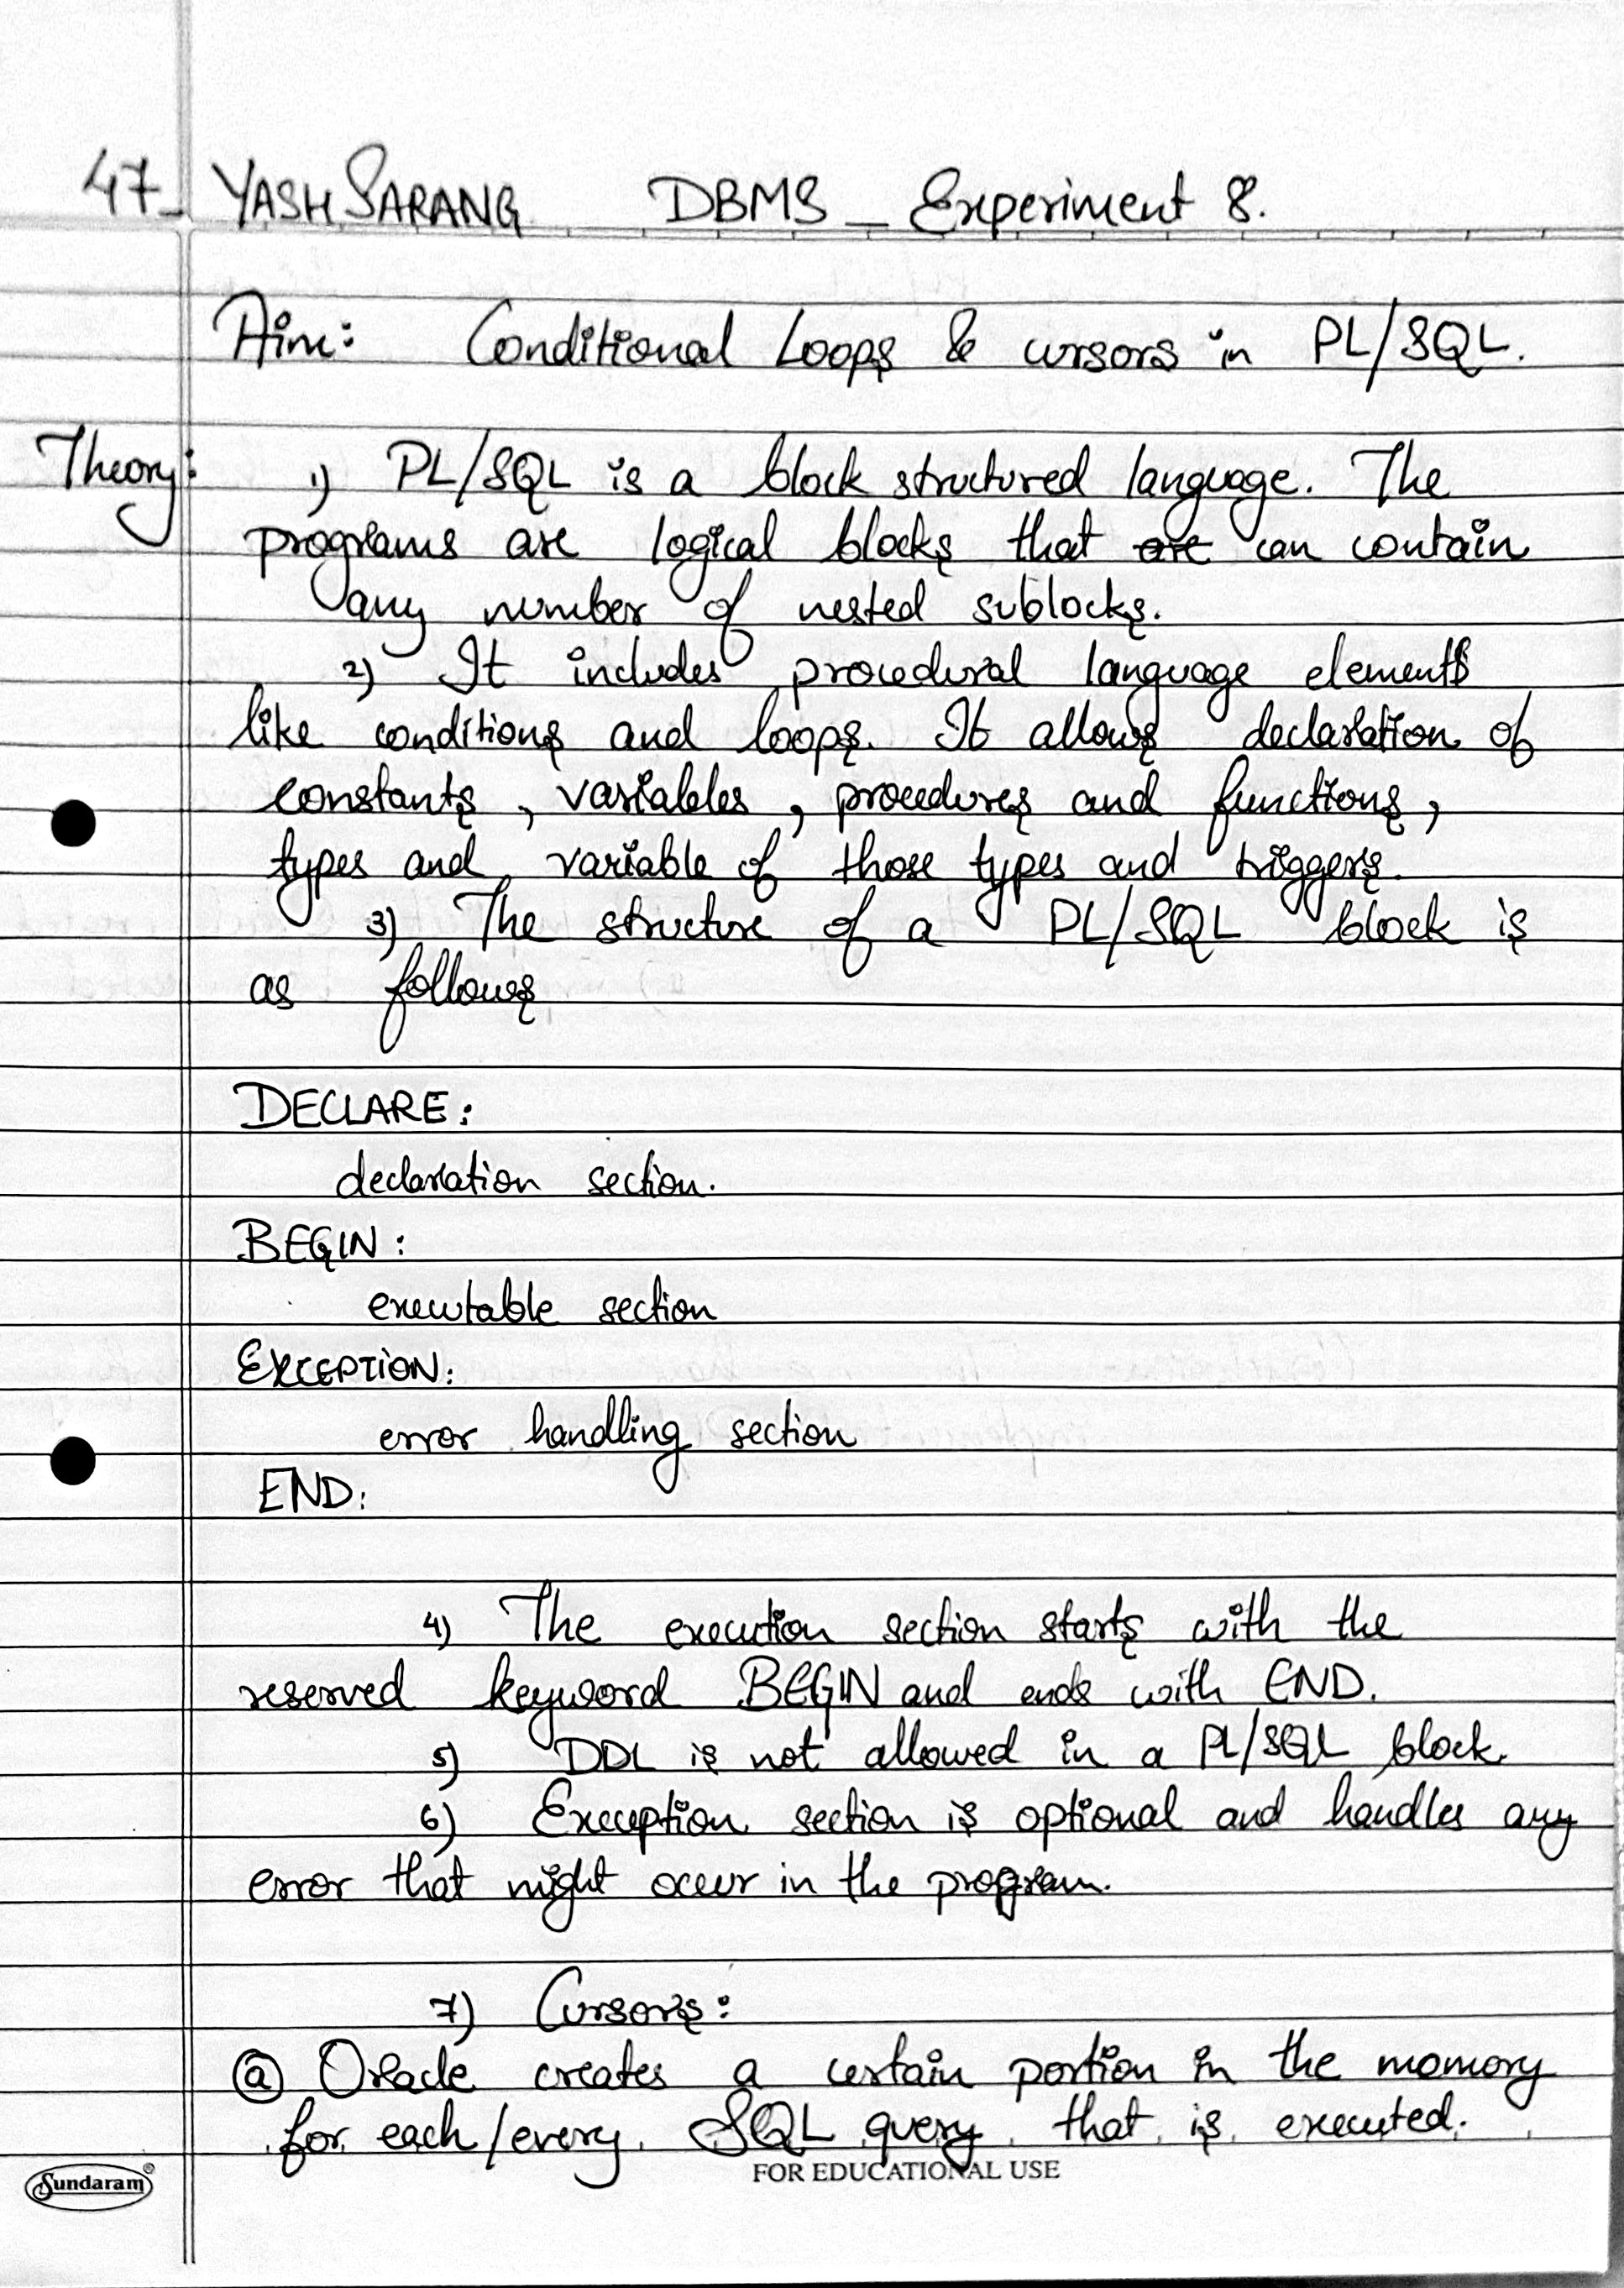 47_ YASH SARANG DBMS _ Experiment 8.
Aim: Conditional Loops & cursors in PL/SQL.
Theory: 1) PL/SQL is a block structured language. The
programs are logical blocks that are can contain
any number of nested sublocks.
2) It includes procedural language elements
like conditions and loops. It allows declaration of
constants, variables, procedures and functions,
types and variable of those types and triggers.
3) The structure of a PL/SQL block is
as follows
DECLARE:
declaration section.
BEGIN:
executable section
EXCEPTION:
error handling section
END:
4) The execution section starts with the
reserved keyword BEGIN and ends with END.
5) DDL is not allowed in a PL/SQL block.
6) Exception section is optional and handles any
error that might occur in the program.
7) Cursors:
(a) Oracle creates a certain portion in the momory
for each/every SQL query that is executed.
Sundaram®
FOR EDUCATIONAL USE